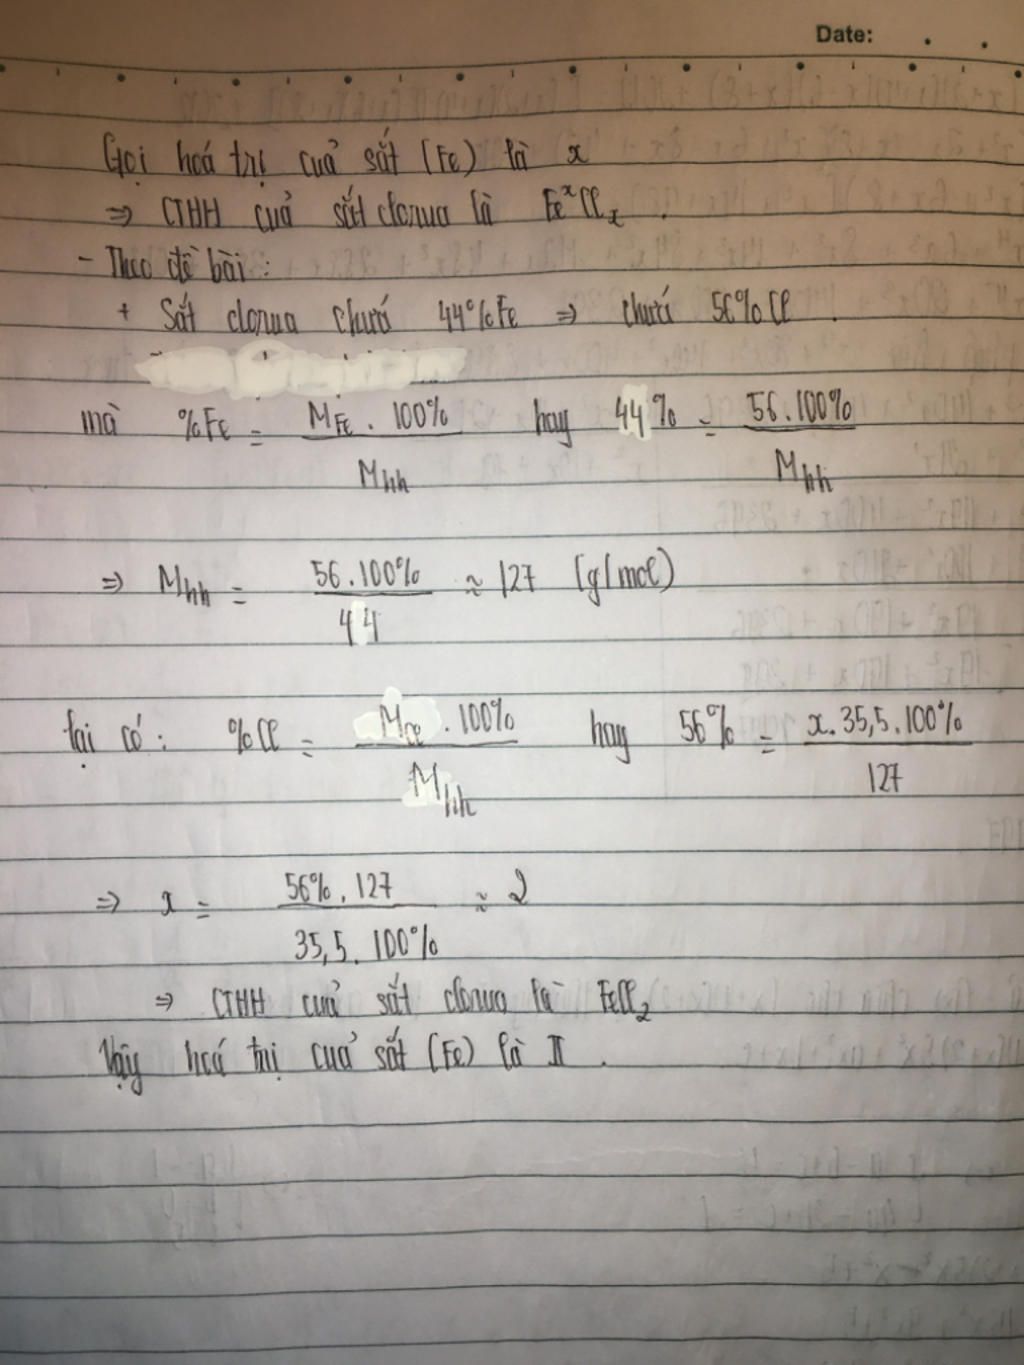 Date:
Gọi hoá trị cuả sắt (Fe) là x
=> CTHH cuả sắt clorua là FeˣClₓ.
- Theo đề bài:
+ Sắt clorua chưá 44%Fe => chưá 56%Cl.
mà %Fe = M_Fe . 100% / M_hh hay 44% = 56.100% / M_hh
=> M_hh = 56.100% / 44 ≈ 127 (g/mol)
lại có: %Cl = M_Cl . 100% / M_hh hay 56% = x.35,5.100% / 127
=> x = 56%.127 / 35,5.100% ≈ 2
=> CTHH cuả sắt clorua là FeCl₂
Vậy hoá trị cuả sắt (Fe) là II.